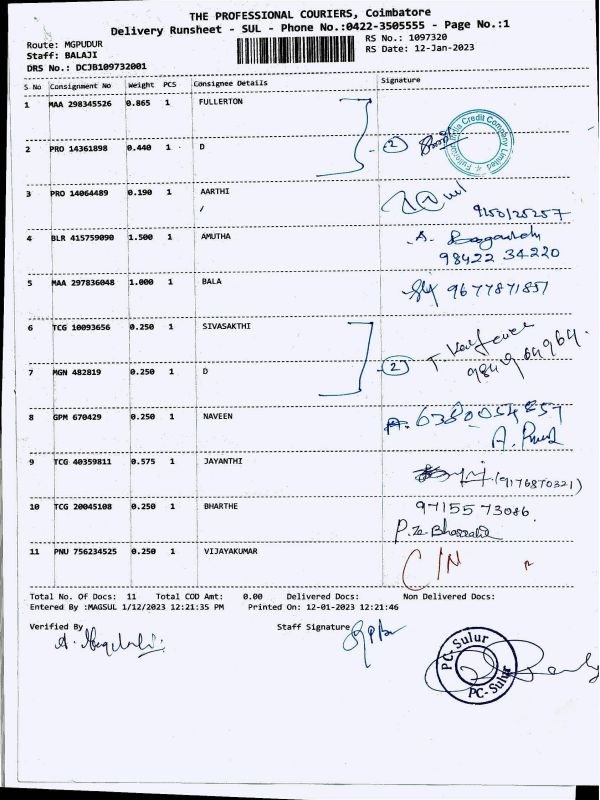 THE PROFESSIONAL COURIERS, Coimbatore
Delivery Runsheet - SUL - Phone No.:0422-3505555 - Page No.:1
Route: MGPUDUR
RS No.: 1097320
Staff: BALAJI
RS Date: 12-Jan-2023
DRS No.: DCJB109732001
S No Consignment No Weight PCS Consignee Details Signature
1 MAA 298345526 0.865 1 FULLERTON
2 PRO 14361898 0.440 1 D 2
3 PRO 14064489 0.190 1 AARTHI
9150125257
4 BLR 415759090 1.500 1 AMUTHA A.
98422 34220
5 MAA 297836048 1.000 1 BALA 9677871857
6 TCG 10093656 0.250 1 SIVASAKTHI
7 MGN 482819 0.250 1 D 2
8 GPM 670429 0.250 1 NAVEEN 6380054857
9 TCG 40359811 0.575 1 JAYANTHI (9176870321)
10 TCG 20045108 0.250 1 BHARTHE 97155 73086
11 PNU 756234525 0.250 1 VIJAYAKUMAR C/N
Total No. Of Docs: 11 Total COD Amt: 0.00 Delivered Docs: Non Delivered Docs:
Entered By :MAGSUL 1/12/2023 12:21:35 PM Printed On: 12-01-2023 12:21:46
Verified By
Staff Signature
PC-Sulur
PC-Sulur